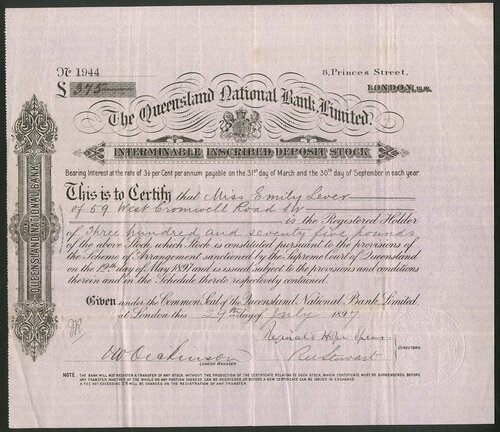 No 1944
£ 375
8, Princes Street,
LONDON, E.C.
The Queensland National Bank, Limited.
INTERMINABLE INSCRIBED DEPOSIT STOCK
Bearing Interest at the rate of 3½ per Cent per annum payable on the 31st day of March and the 30th day of September in each year.
This is to Certify that Miss Emily Lever
of 59 West Cromwell Road SW
is the Registered Holder
of Three hundred and seventy five pounds
of the above Stock, which Stock is constituted pursuant to the provisions of
the Scheme of Arrangement sanctioned by the Supreme Court of Queensland
on the 12th day of May 1897 and is issued subject to the provisions and conditions
therein and in the Schedule thereto respectively contained.
Given under the Common Seal of the Queensland National Bank, Limited,
at London this 29th day of July 1897
QUEENSLAND NATIONAL BANK
Reginald
VW Dickinson
LONDON MANAGER.
Stewart
DIRECTORS.
NOTE. THE BANK WILL NOT REGISTER A TRANSFER OF ANY STOCK WITHOUT THE PRODUCTION OF THE CERTIFICATE RELATING TO SUCH STOCK, WHICH CERTIFICATE MUST BE SURRENDERED BEFORE
ANY TRANSFER, WHETHER OF THE WHOLE OR ANY PORTION THEREOF CAN BE REGISTERED, OR BEFORE A NEW CERTIFICATE CAN BE ISSUED IN EXCHANGE.
A FEE NOT EXCEEDING 2/6 WILL BE CHARGED ON THE REGISTRATION OF ANY TRANSFER.